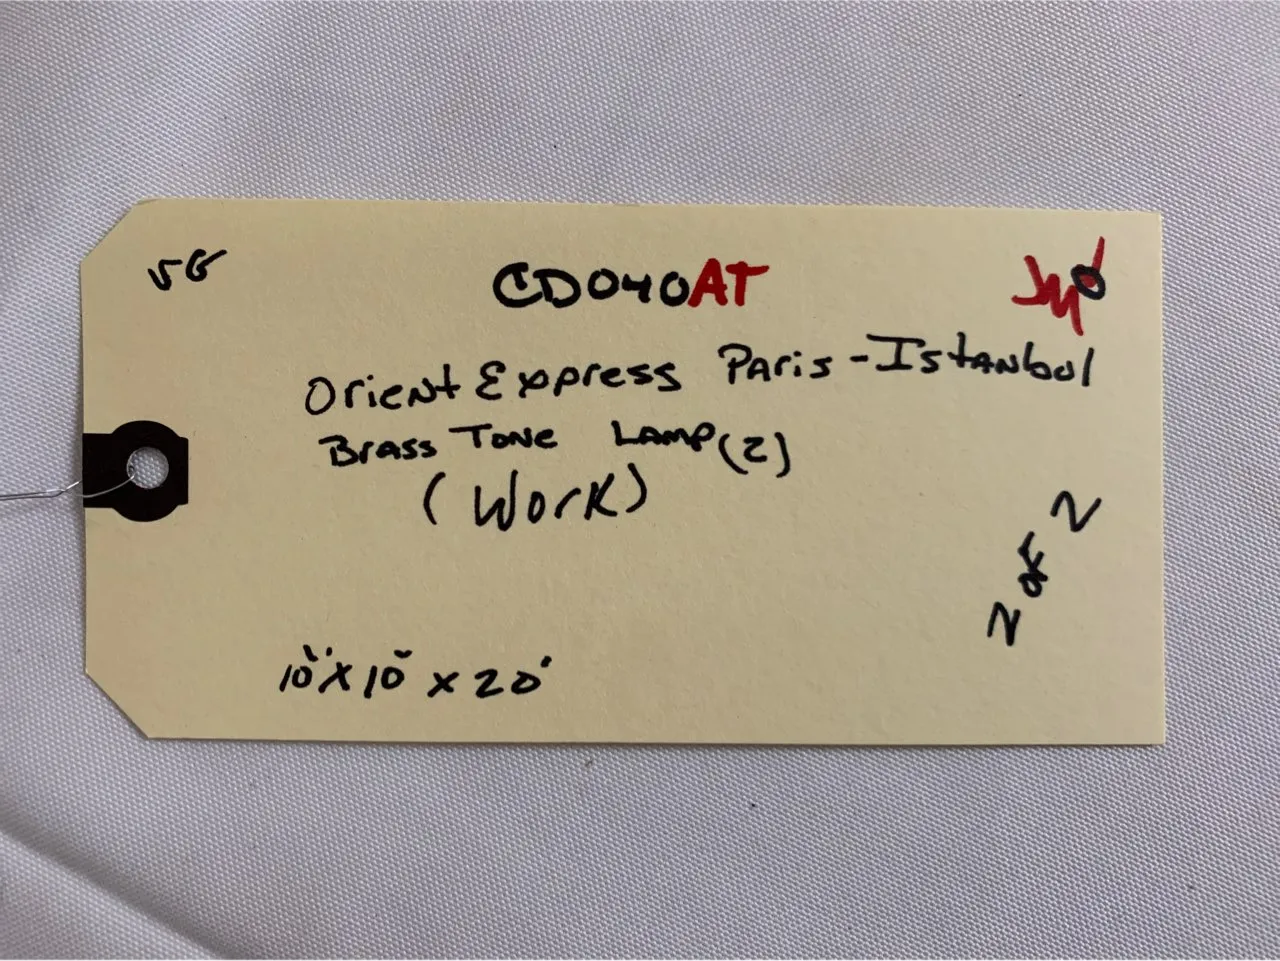 VG
CD040AT
Orient Express Paris - Istanbul
Brass Tone Lamp (2)
(Work)
2 of 2
10" x 10" x 20"